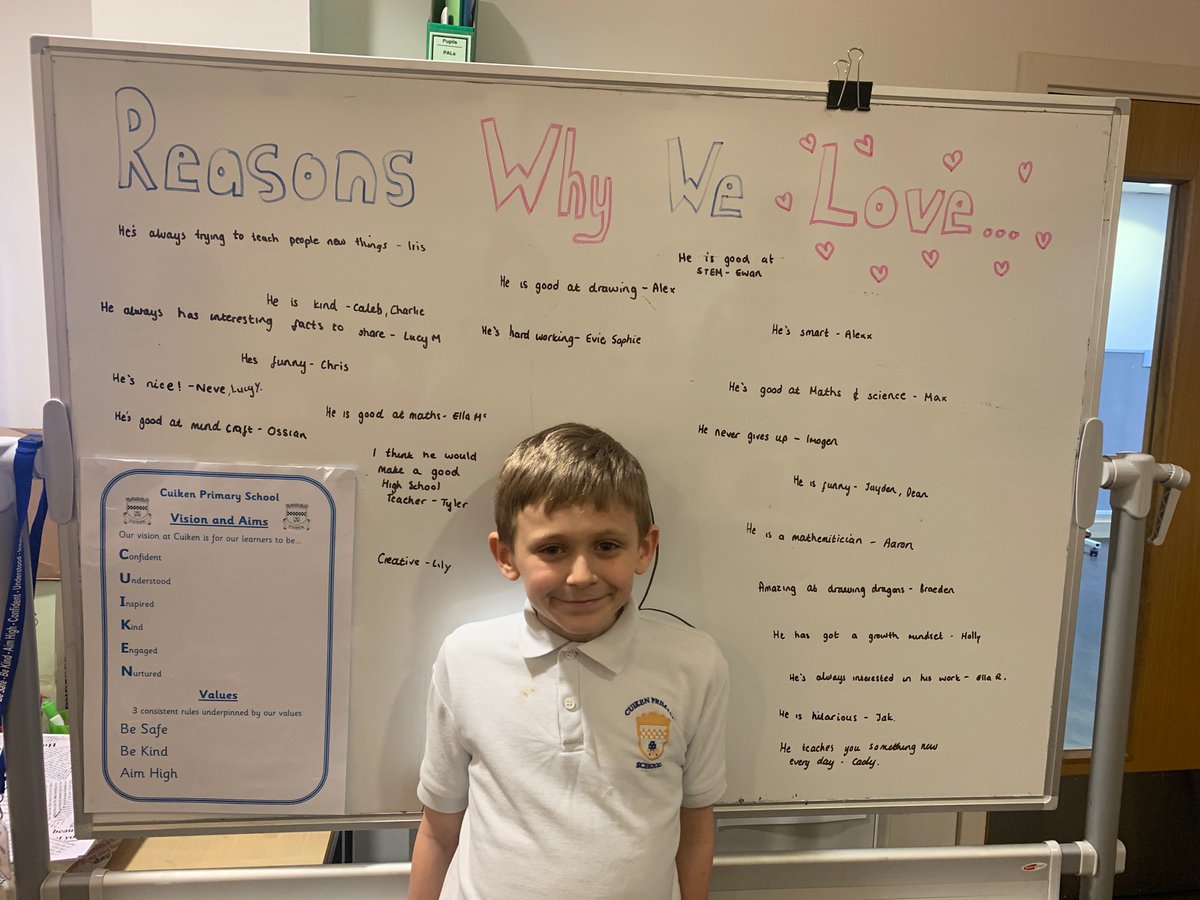 Pupils
PALs
Reasons Why We Love...
He's always trying to teach people new things - Iris
He is good at
STEM - Ewan
He is good at drawing - Alex
He is kind - Caleb, Charlie
He always has interesting facts to share - Lucy M
He's hard working - Evie, Sophie
He's smart - Alexx
Hes funny - Chris
He's nice! - Neve, Lucy Y.
He's good at Maths & science - Max
He's good at mind craft - Ossian
He is good at maths - Ella Mc
He never gives up - Imogen
I think he would
make a good
High School
Teacher - Tyler
He is funny - Jayden, Dean
He is a mathemitician - Aaron
Creative - Lily
Amazing at drawing dragons - Braeden
He has got a growth mindset - Holly
He's always interested in his work - Ella R.
He is hilarious - Jak.
He teaches you something new
every day - Cody.
Cuiken Primary School
Vision and Aims
Our vision at Cuiken is for our learners to be...
Confident
Understood
Inspired
Kind
Engaged
Nurtured
Values
3 consistent rules underpinned by our values
Be Safe
Be Kind
Aim High
CUIKEN PRIMARY
SCHOOL
Be Safe - Be Kind - Aim High - Confident - Understood